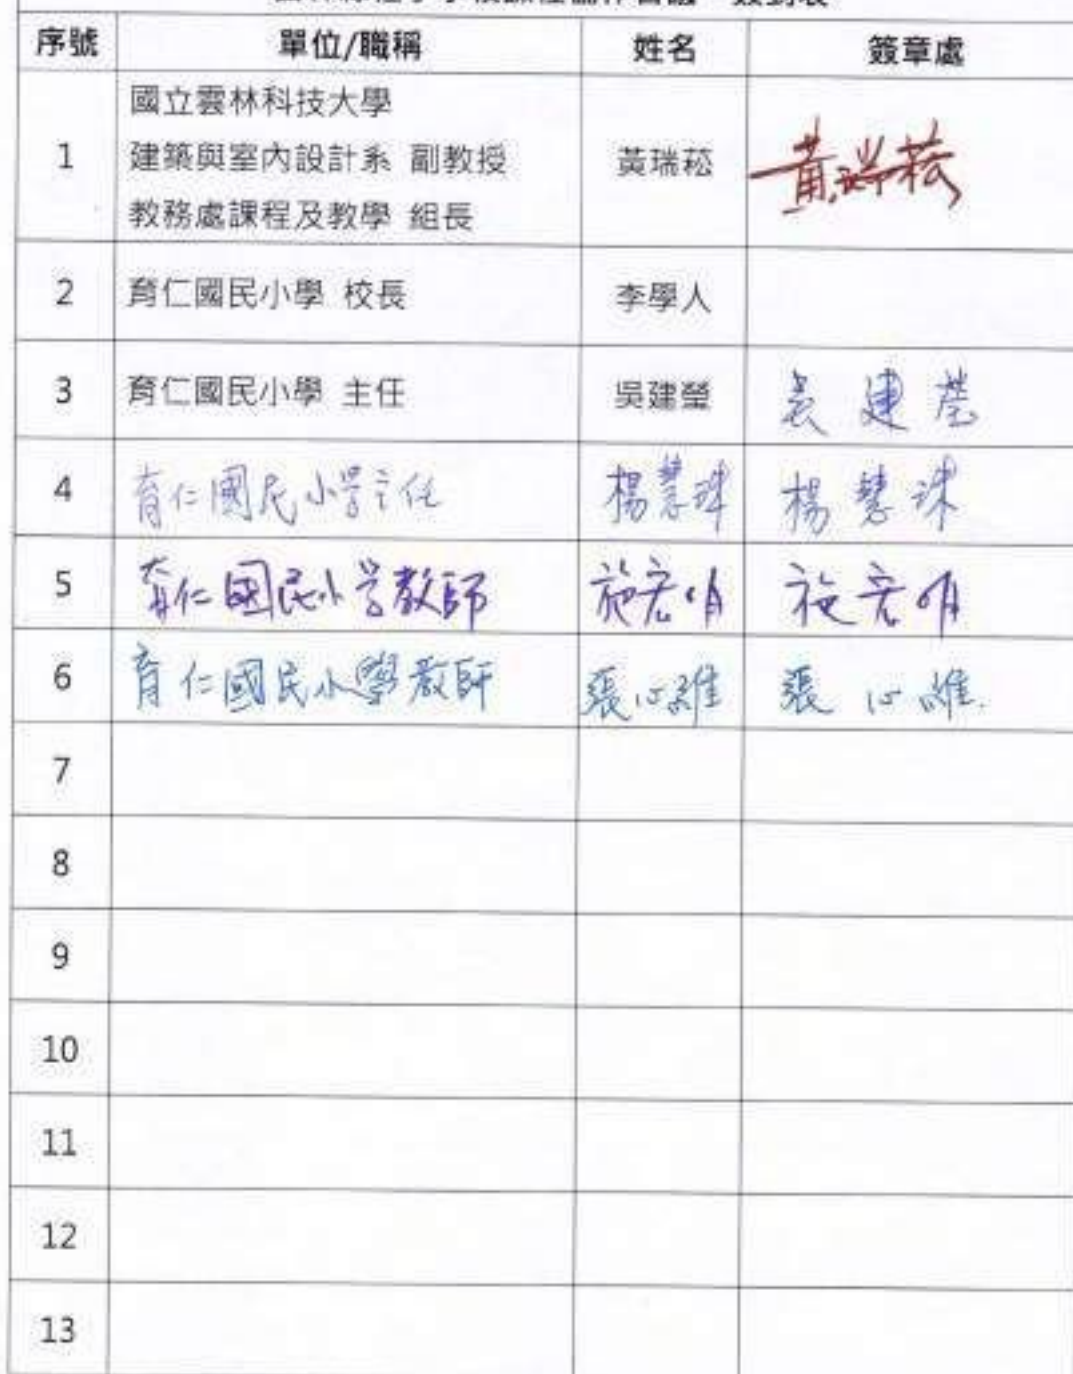 序號 單位/職稱 姓名 簽章處
國立雲林科技大學
1 建築與室內設計系 副教授 黃瑞菘 黃瑞菘
教務處課程及教學 組長
2 育仁國民小學 校長 李學人
3 育仁國民小學 主任 吳建瑩 吳建瑩
4 育仁國民小学主任 楊慧珠 楊慧珠
5 育仁國民小学教師 施宏 施宏
6 育仁國民小學教師 張心維 張心維
7
8
9
10
11
12
13